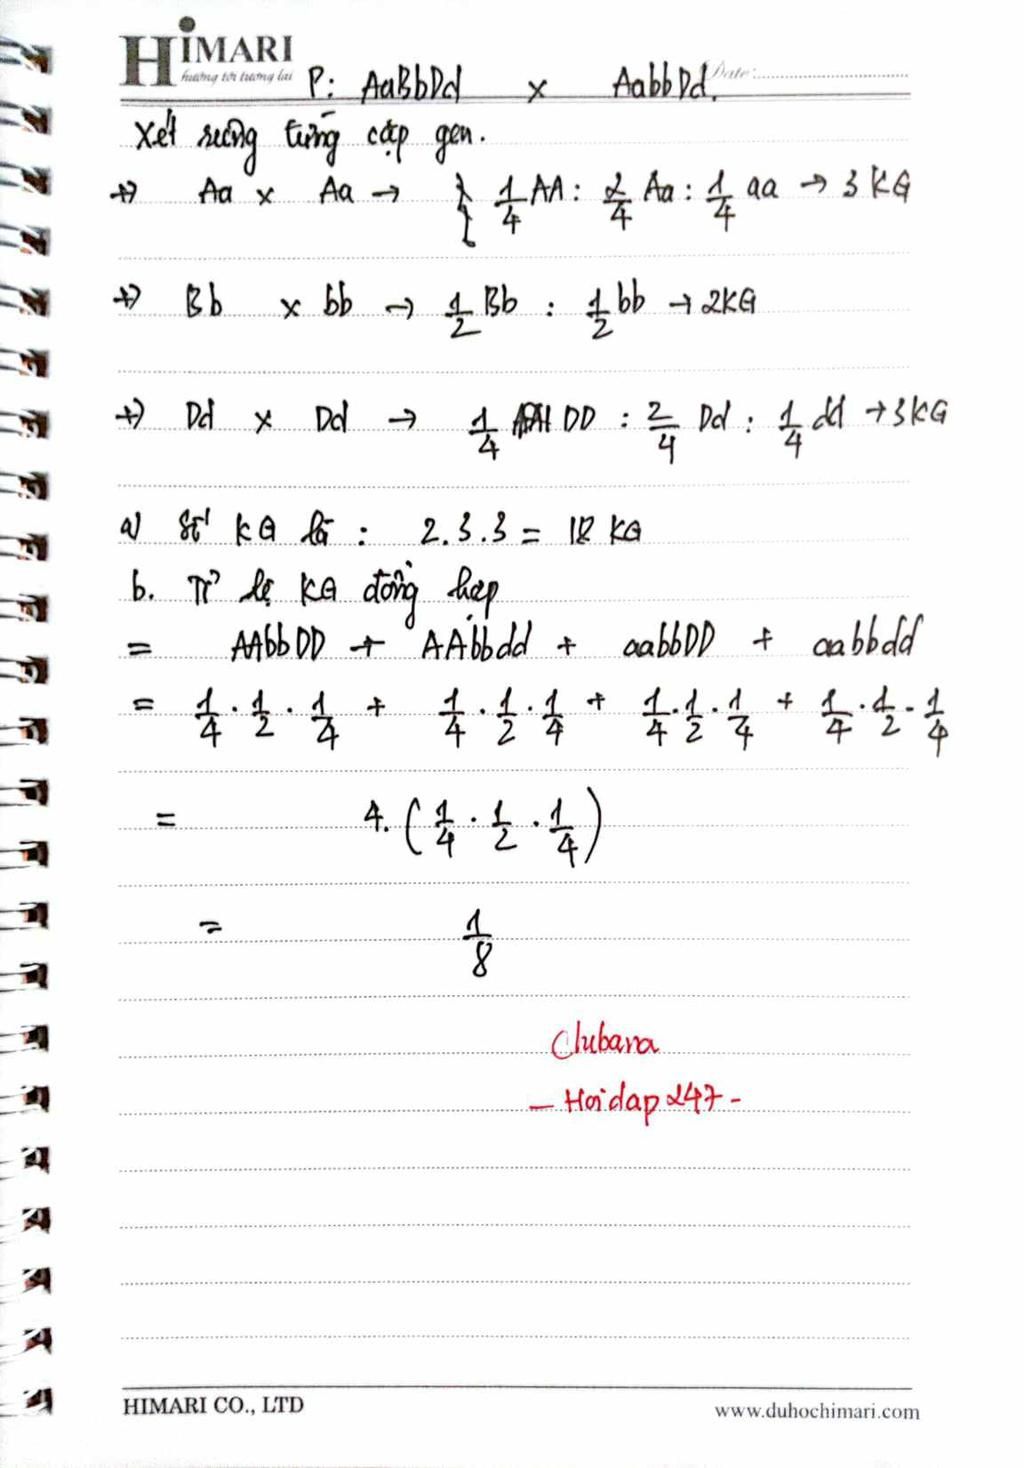 HIMARI
hướng tới tương lai
Date:
P: AaBbDd x AabbDd.
Xét riêng từng cặp gen.
+) Aa x Aa → { 1/4 AA : 2/4 Aa : 1/4 aa → 3 KG
+) Bb x bb → 1/2 Bb : 1/2 bb → 2KG
+) Dd x Dd → 1/4 DD : 2/4 Dd : 1/4 dd → 3KG
a) Số KG là : 2.3.3 = 18 KG
b. Tỉ lệ KG đồng hợp
= AAbbDD + AAbbdd + aabbDD + aabbdd
= 1/4 . 1/2 . 1/4 + 1/4 . 1/2 . 1/4 + 1/4 . 1/2 . 1/4 + 1/4 . 1/2 . 1/4
= 4. (1/4 . 1/2 . 1/4)
= 1/8
Clubana
- Hoidap247 -
HIMARI CO., LTD
www.duhochimari.com